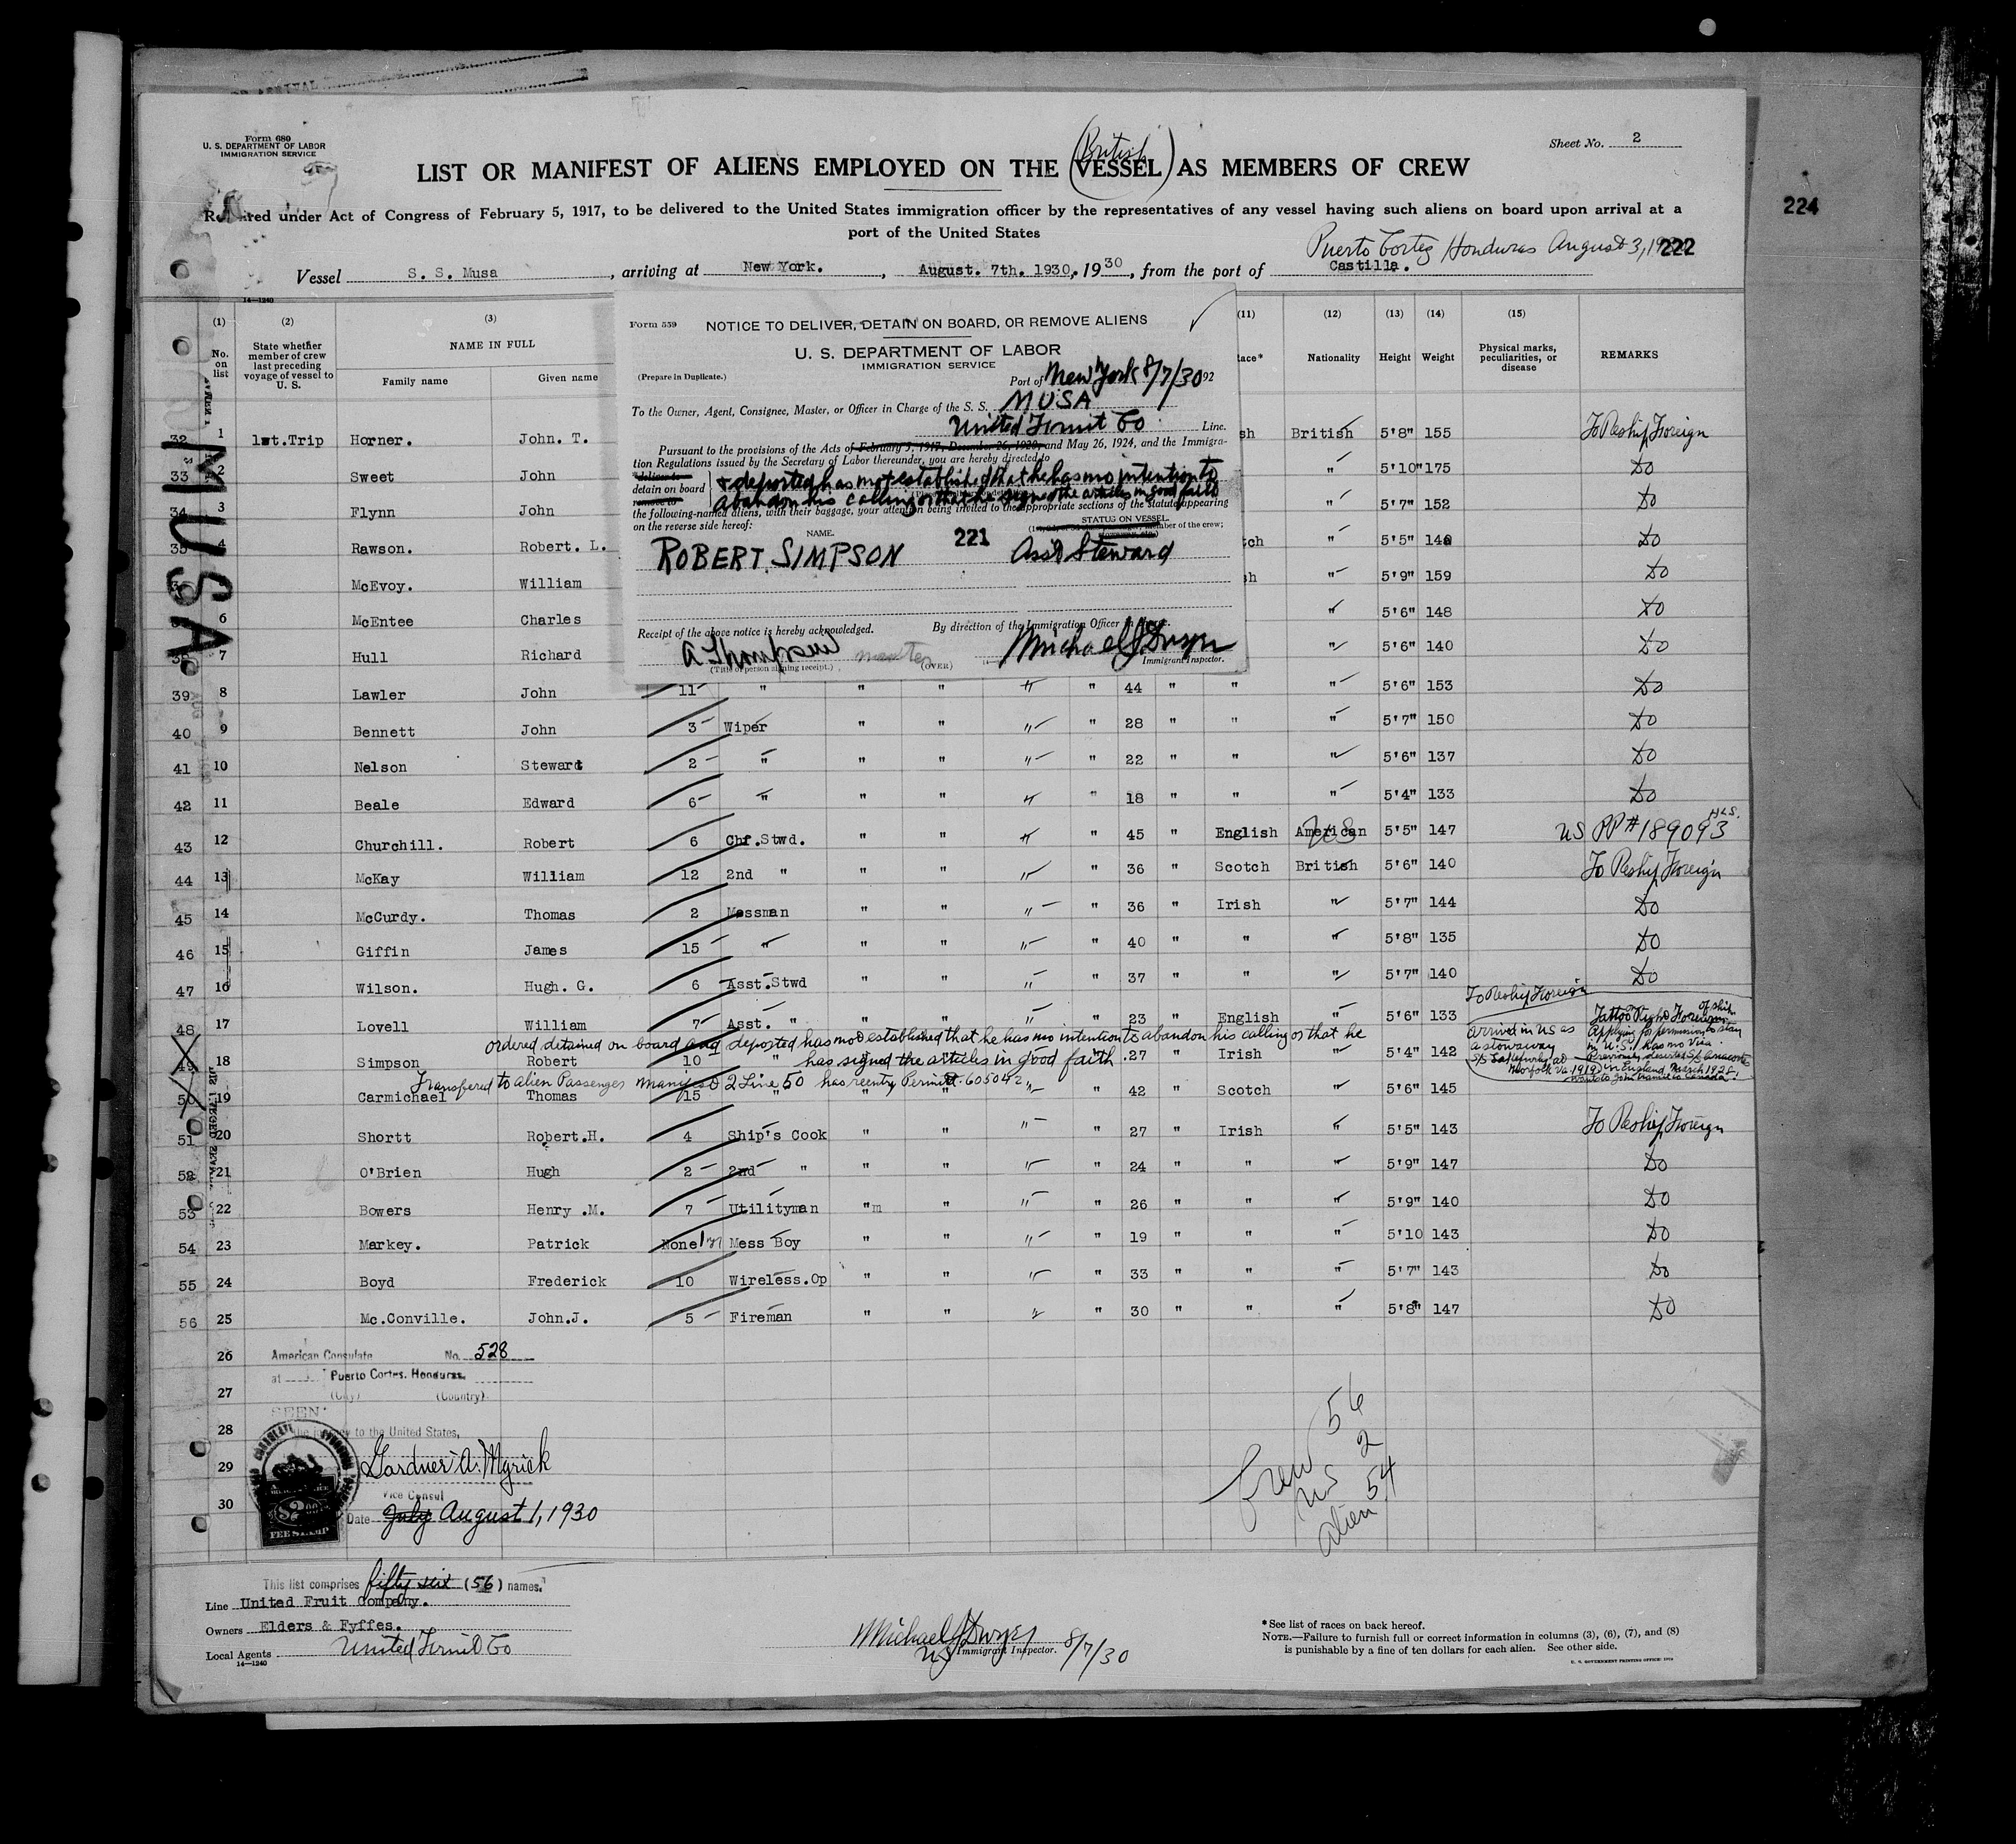 224
Form 680
U. S. DEPARTMENT OF LABOR
IMMIGRATION SERVICE
Sheet No. 2
British
LIST OR MANIFEST OF ALIENS EMPLOYED ON THE VESSEL AS MEMBERS OF CREW
Required under Act of Congress of February 5, 1917, to be delivered to the United States immigration officer by the representatives of any vessel having such aliens on board upon arrival at a
port of the United States
Puerto Cortes Honduras August 3, 19 222
Vessel S. S. Musa, arriving at New York., August. 7th. 1930, 1930, from the port of Castilla.
14—1240
(1) (2) (3) (11) (12) (13) (14) (15)
No. on list State whether member of crew last preceding voyage of vessel to U. S. NAME IN FULL Nationality Height Weight Physical marks, peculiarities, or disease REMARKS
Family name Given name
Form 559 NOTICE TO DELIVER, DETAIN ON BOARD, OR REMOVE ALIENS
U. S. DEPARTMENT OF LABOR
IMMIGRATION SERVICE
(Prepare in Duplicate.) Port of New York 8/7/30 192
To the Owner, Agent, Consignee, Master, or Officer in Charge of the S. S. MUSA
United Fruit Co Line.
Pursuant to the provisions of the Acts of February 5, 1917, December 26, 1920, and May 26, 1924, and the Immigra-
tion Regulations issued by the Secretary of Labor thereunder, you are hereby directed to
deliver to
detain on board & deported has not established that he has no intention to
abandon his calling or that he signed the articles in good faith
the following-named aliens, with their baggage, your attention being invited to the appropriate sections of the Statute appearing
on the reverse side hereof:
STATUS ON VESSEL
NAME.
ROBERT SIMPSON 221 Asst Steward
Receipt of the above notice is hereby acknowledged. By direction of the Immigration Officer in Charge.
A Thompson master Michael J Dwyer
(Title of person signing receipt.) (OVER) Immigrant Inspector.
32 1 1st.Trip Horner. John. T. British 5'8" 155 To Reship Foreign
33 2 Sweet John " 5'10" 175 Do
34 3 Flynn John " 5'7" 152 Do
35 4 Rawson. Robert. L. " 5'5" 148 Do
McEvoy. William " 5'9" 159 Do
6 McEntee Charles " 5'6" 148 Do
38 7 Hull Richard " 5'6" 140 Do
39 8 Lawler John 11 " " " " " 44 " " " 5'6" 153 Do
40 9 Bennett John 3 Wiper " " " " 28 " " " 5'7" 150 Do
41 10 Nelson Steward 2 " " " " " 22 " " " 5'6" 137 Do
42 11 Beale Edward 6 " " " " " 18 " " " 5'4" 133 Do
43 12 Churchill. Robert 6 Chf.Stwd. " " " " 45 " English American 5'5" 147 US PP # 189093
44 13 McKay William 12 2nd " " " " " 36 " Scotch British 5'6" 140 To Reship Foreign
45 14 McCurdy. Thomas 2 Messman " " " " 36 " Irish " 5'7" 144 Do
46 15 Giffin James 15 " " " " " 40 " " " 5'8" 135 Do
47 16 Wilson. Hugh. G. 6 Asst.Stwd " " " " 37 " " " 5'7" 140 Do
48 17 Lovell William 7 Asst. " " " " " 23 " English " 5'6" 133 To Reship Foreign
ordered detained on board and deported has not established that he has no intention to abandon his calling or that he
has signed the articles in good faith
49 18 Simpson Robert 10 " 27 " Irish " 5'4" 142
Arrived in US as a stowaway
Norfolk Va. 1919
Applying for permission to stay in U.S. has no visa.
in England March 1928.
Transfered to alien Passenger manifest 2 Line 50 has reentry Permit 605042
50 19 Carmichael Thomas 15 " " " " " 42 " Scotch " 5'6" 145
51 20 Shortt Robert.H. 4 Ship's Cook " " " " 27 " Irish " 5'5" 143 To Reship Foreign
52 21 O'Brien Hugh 2 2nd " " " " " 24 " " " 5'9" 147 Do
53 22 Bowers Henry .M. 7 Utilityman "m " " " 26 " " " 5'9" 140 Do
54 23 Markey. Patrick None Mess Boy " " " " 19 " " " 5'10 143 Do
55 24 Boyd Frederick 10 Wireless.Op " " " " 33 " " " 5'7" 143 Do
56 25 Mc.Conville. John.J. 5 Fireman " " " " 30 " " " 5'8" 147 Do
26 American Consulate No. 528
at Puerto Cortes, Honduras.
27 (City) (Country)
SEEN:
28 to the United States,
29 Gardner A. Myrick
Vice Consul
30 Date July August 1, 1930
FEE STAMP
Crew 56
US 2
alien 54
MUSA
This list comprises fifty six (56) names.
Line United Fruit Company.
Owners Elders & Fyffes.
Local Agents United Fruit Co
14—1240
Michael J Dwyer 8/7/30
Immigrant Inspector.
*See list of races on back hereof.
NOTE.—Failure to furnish full or correct information in columns (3), (6), (7), and (8)
is punishable by a fine of ten dollars for each alien. See other side.
U. S. GOVERNMENT PRINTING OFFICE